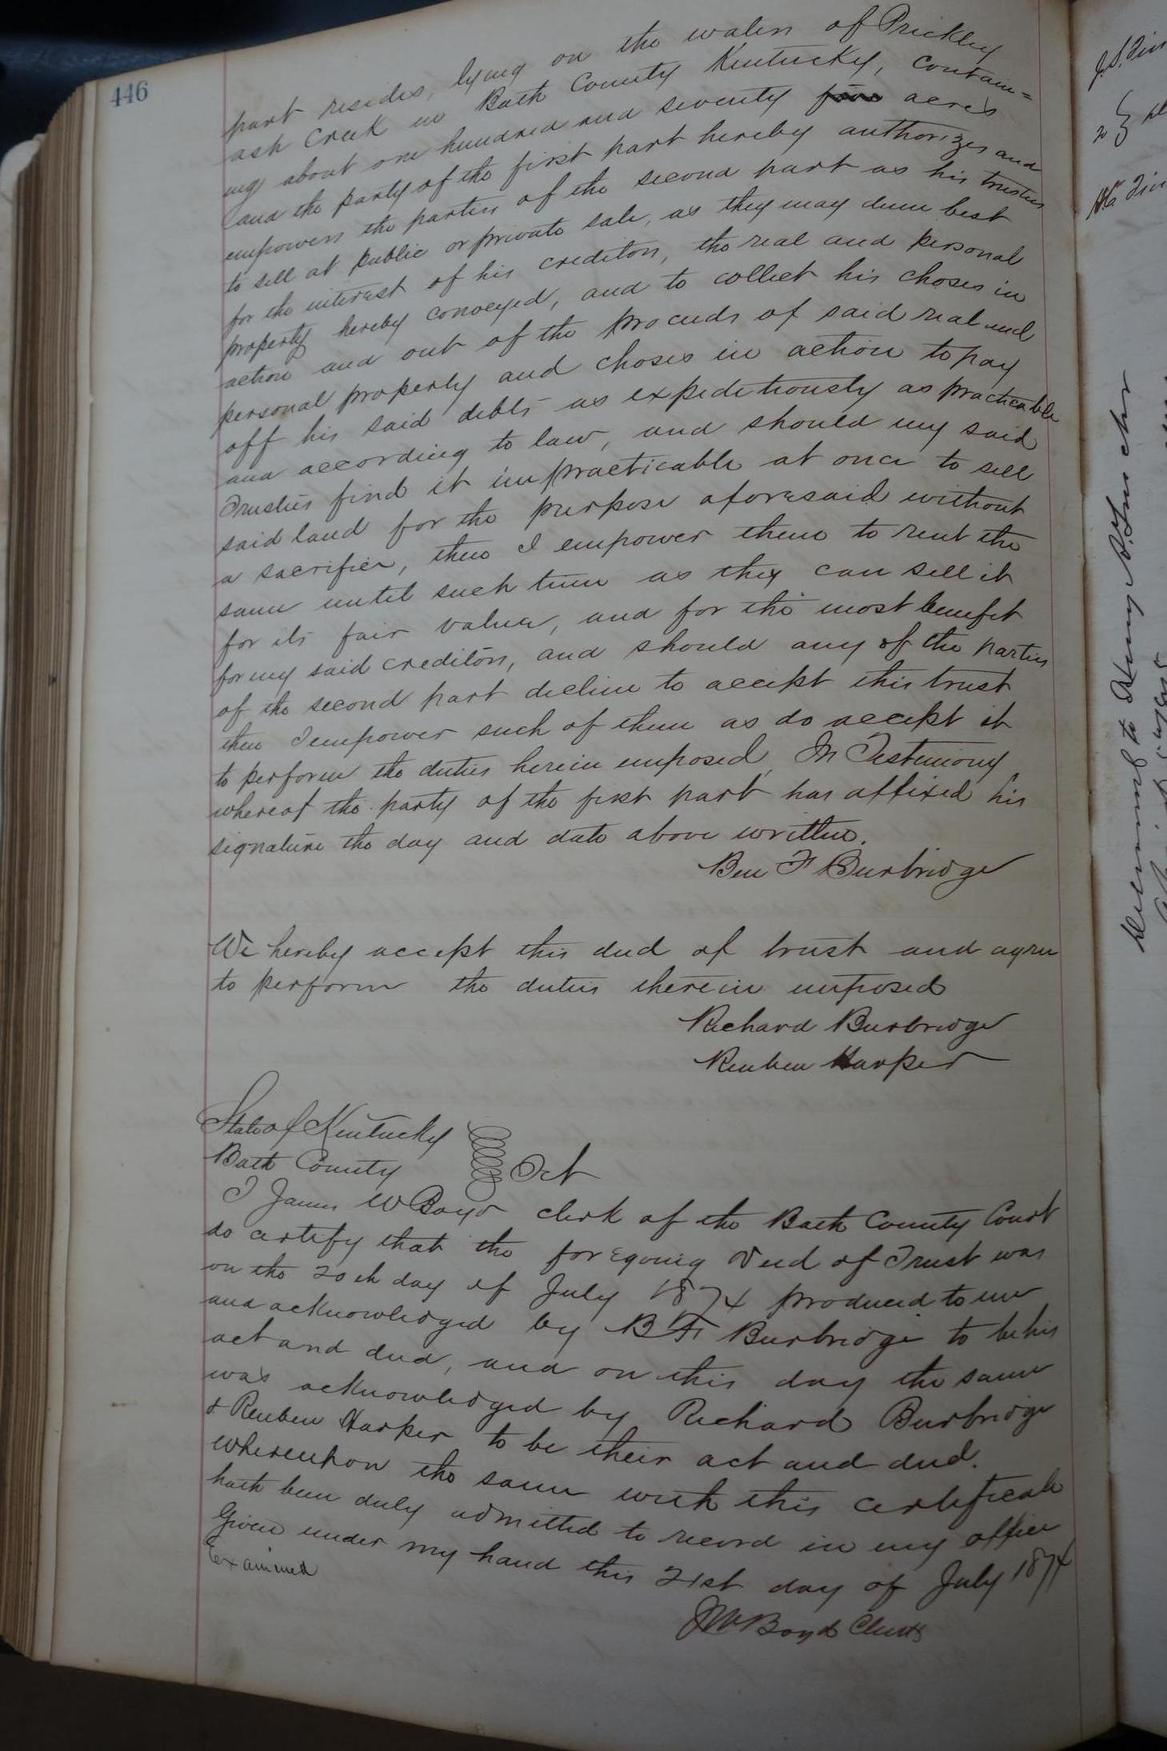 446
part resides, lying on the waters of Prickly
ash Creek in Bath County Kentucky, contain=
ing about one hundred and seventy five acres
and the party of the first part hereby authorizes and
empowers the parties of the second part as his trustees
to sell at public or private sale, as they may deem best
for the interest of his creditors, the real and personal
property hereby conveyed, and to collect his choses in
action and out of the proceeds of said real and
personal property and choses in action to pay
off his said debts as expeditiously as practicable
and according to law, and should my said
Trustees find it impracticable at once to sell
said land for the purpose aforesaid without
a sacrifice, then I empower them to rent the
same until such time as they can sell it
for its fair value, and for the most benefit
for my said creditors, and should any of the parties
of the second part decline to accept this trust
then I empower such of them as do accept it
to perform the duties herein imposed, In Testimony
whereof the party of the first part has affixed his
signature the day and date above written.
Ben F Burbridge
We hereby accept this deed of trust and agree
to perform the duties therein imposed
Richard Burbridge
Reuben Harper
State of Kentucky
Bath County Sct
I James W Boyd clerk of the Bath County Court
do certify that the foregoing Deed of Trust was
on the 20th day of July 1874 produced to me
and acknowledged by B F Burbridge to be his
act and deed, and on this day the same
was acknowledged by Richard Burbridge
& Reuben Harper to be their act and deed.
whereupon the same with this certificate
hath been duly admitted to record in my office
Given under my hand this 21st day of July 1874
Examined
J W Boyd Clerk